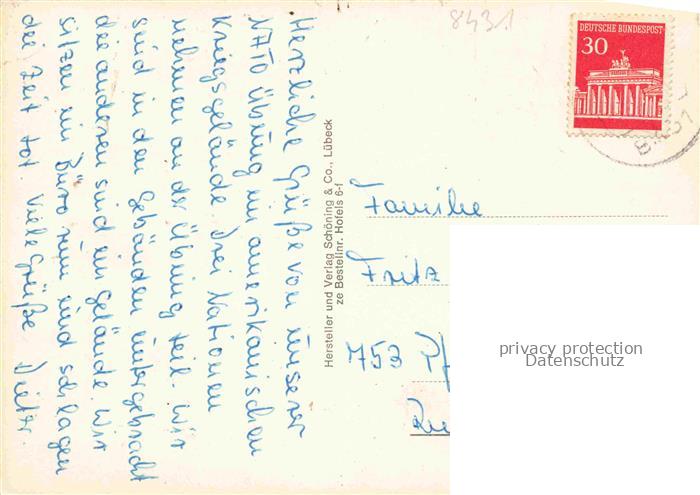 Herzliche Grüße von unserer
NATO Übung im amerikanischen
Kriegsgelände. Drei Nationen
nehmen an der Übung teil. Wir
sind in den Gebäuden untergebracht
die anderen sind im Gelände. Wir
sitzen im Büro rum und schlagen
die Zeit tot. Viele Grüße Dieter.
Hersteller und Verlag Schöning & Co., Lübeck
ze Bestellnr. Hotels 6-f
8431
DEUTSCHE BUNDESPOST
30
Familie
Fritz
753 Pf
privacy protection
Datenschutz